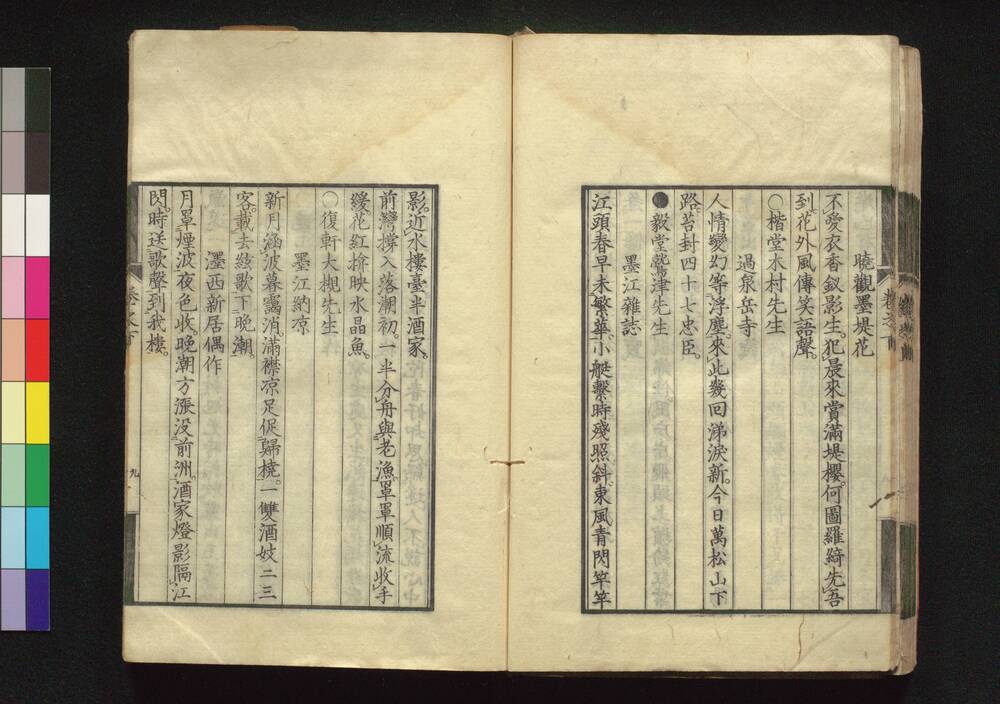 曉觀墨堤花
不愛衣香釵影生。犯晨來賞滿堤櫻。何圖羅綺先吾
到。花外風傳笑語聲。
○楷堂木村先生
過泉岳寺
人情變幻等浮塵。來此幾回涕淚新。今日萬松山下
路。苔封四十七忠臣。
●毅堂鷲津先生
墨江雜誌
江頭春早未繁華。小艇繫時殘照斜。東風青閃竿竿
影。近水樓臺半酒家。
前灣撐入落潮初。一半分舟與老漁。罩罩順流收手
緩。花紅揜映水晶魚。
○復軒大槻先生
墨江納凉
新月涵波暮靄消。滿襟凉足促歸橈。一雙酒妓二三
客。載去絃歌下晚潮。
墨西新居偶作
月罩煙波夜色收。晚潮方漲没前洲。酒家燈影隔江
閃。時送歌聲到我樓。
九